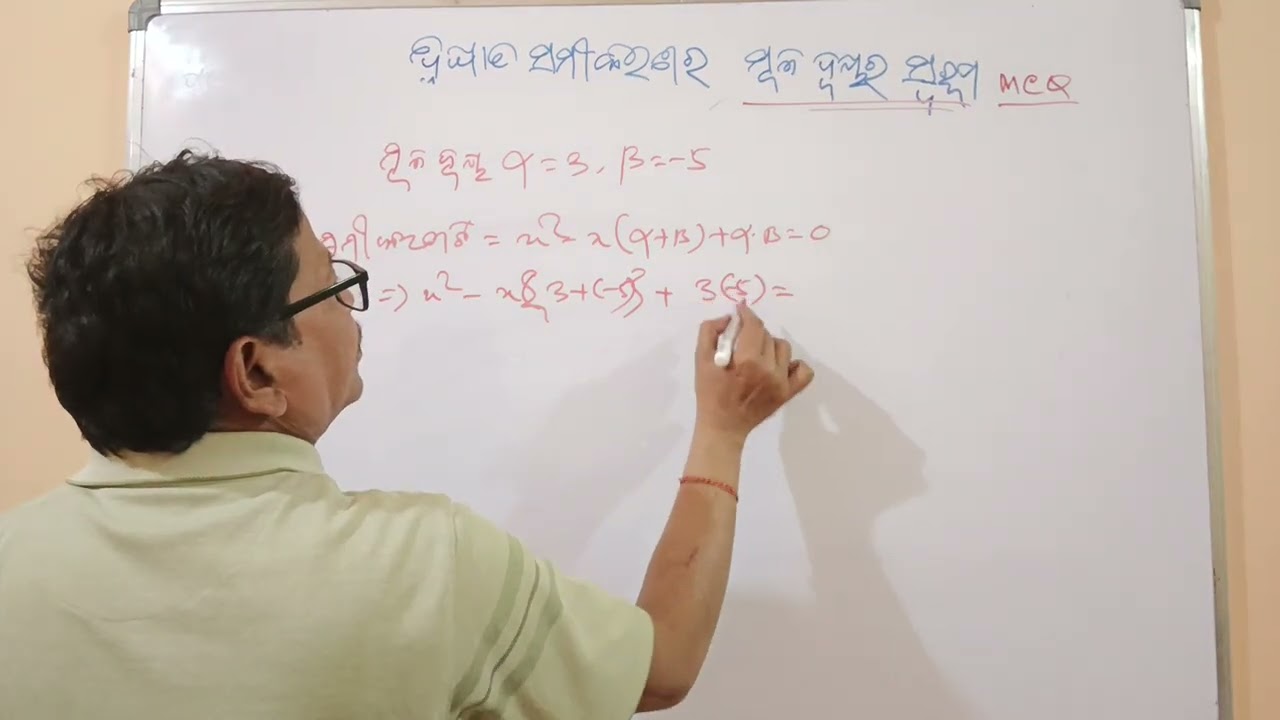 ଦ୍ୱିଘାତ ସମୀକରଣର ମୂଳ ଦ୍ୱୟର ସ୍ୱରୂପ MCQ
ମୂଳ ଦ୍ୱୟ α = 3, β = -5
ସମୀକରଣଟି = x² - x(α+β) + α.β = 0
=> x² - x{3+(-5)} + 3(-5) =